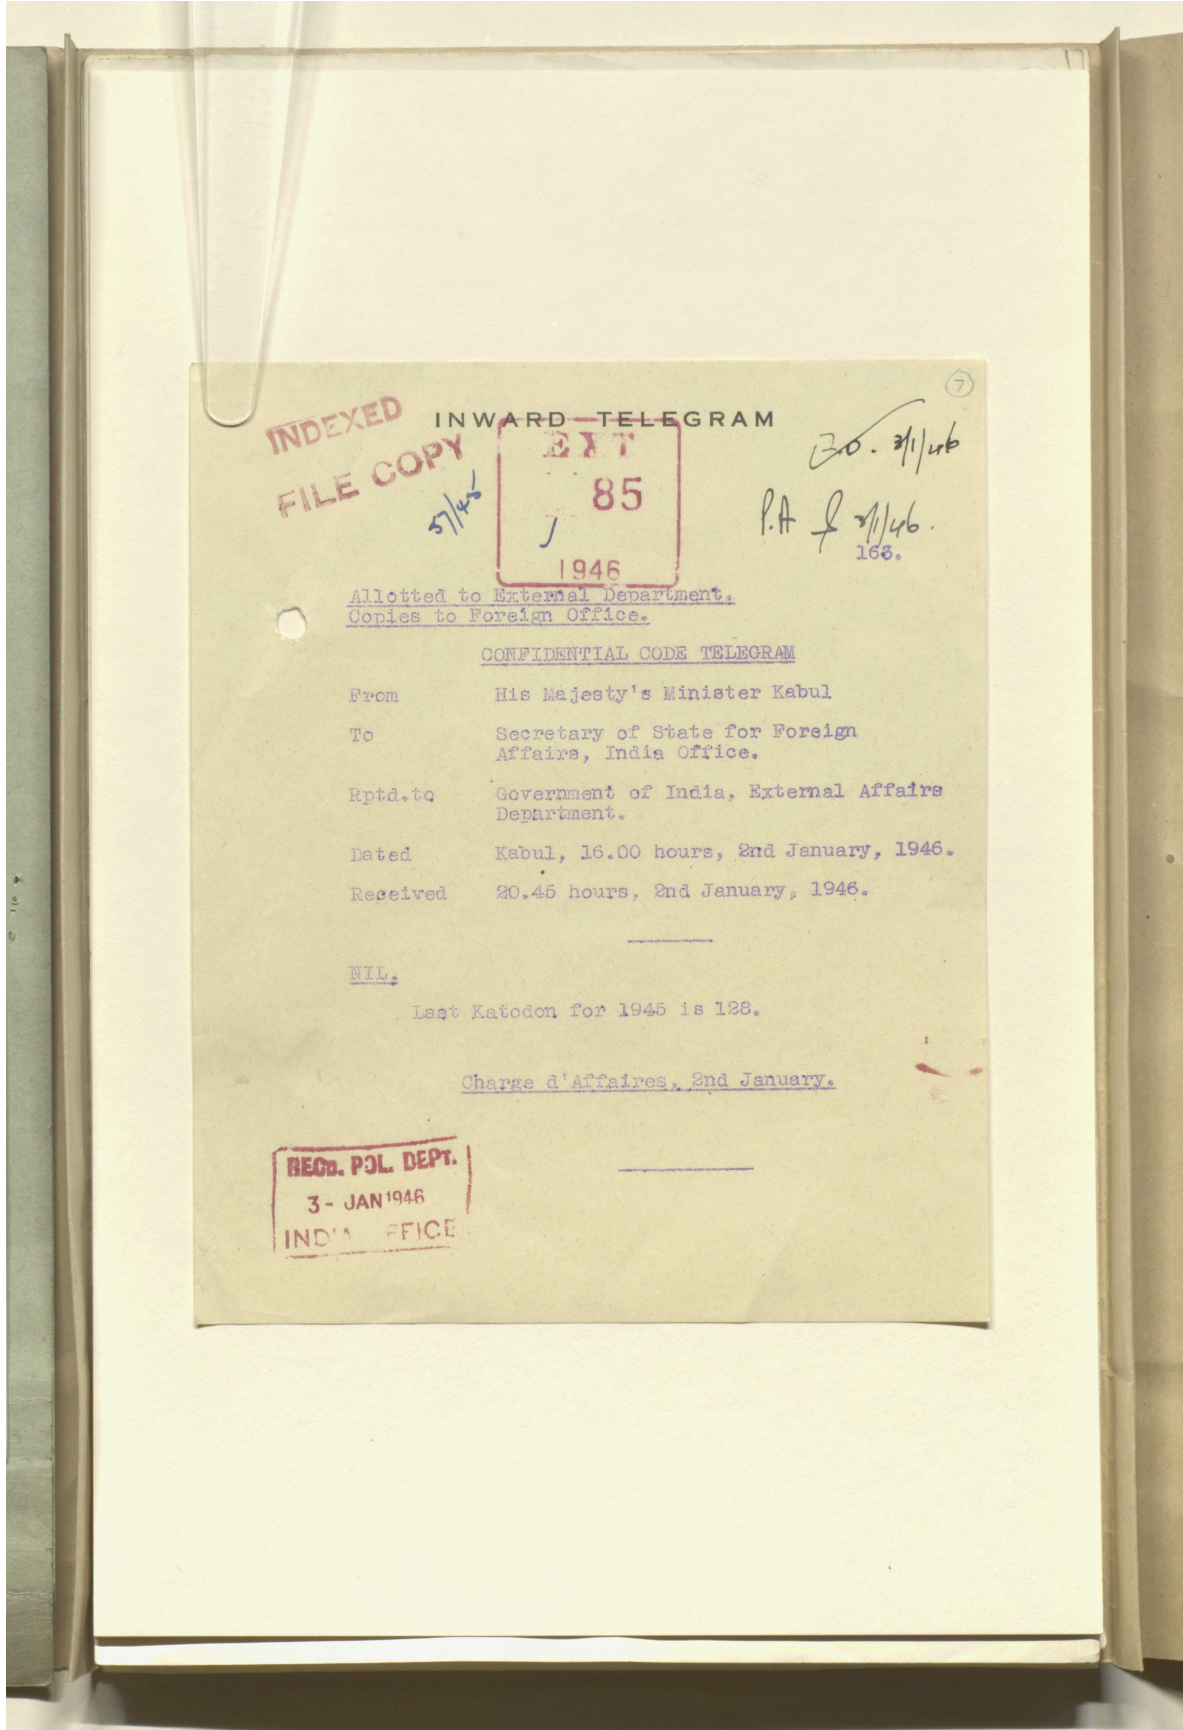 7
INDEXED
FILE COPY
INWARD TELEGRAM
EXT
85
1946
57/45
E.O. 3/1/46
P.A 3/1/46.
163.
Allotted to External Department.
Copies to Foreign Office.
CONFIDENTIAL CODE TELEGRAM
From His Majesty's Minister Kabul
To Secretary of State for Foreign
Affairs, India Office.
Rptd.to Government of India, External Affairs
Department.
Dated Kabul, 16.00 hours, 2nd January, 1946.
Received 20.45 hours, 2nd January, 1946.
NIL.
Last Katodon for 1945 is 128.
Charge d'Affaires, 2nd January.
RECD. POL. DEPT.
3 - JAN 1946
INDIA OFFICE